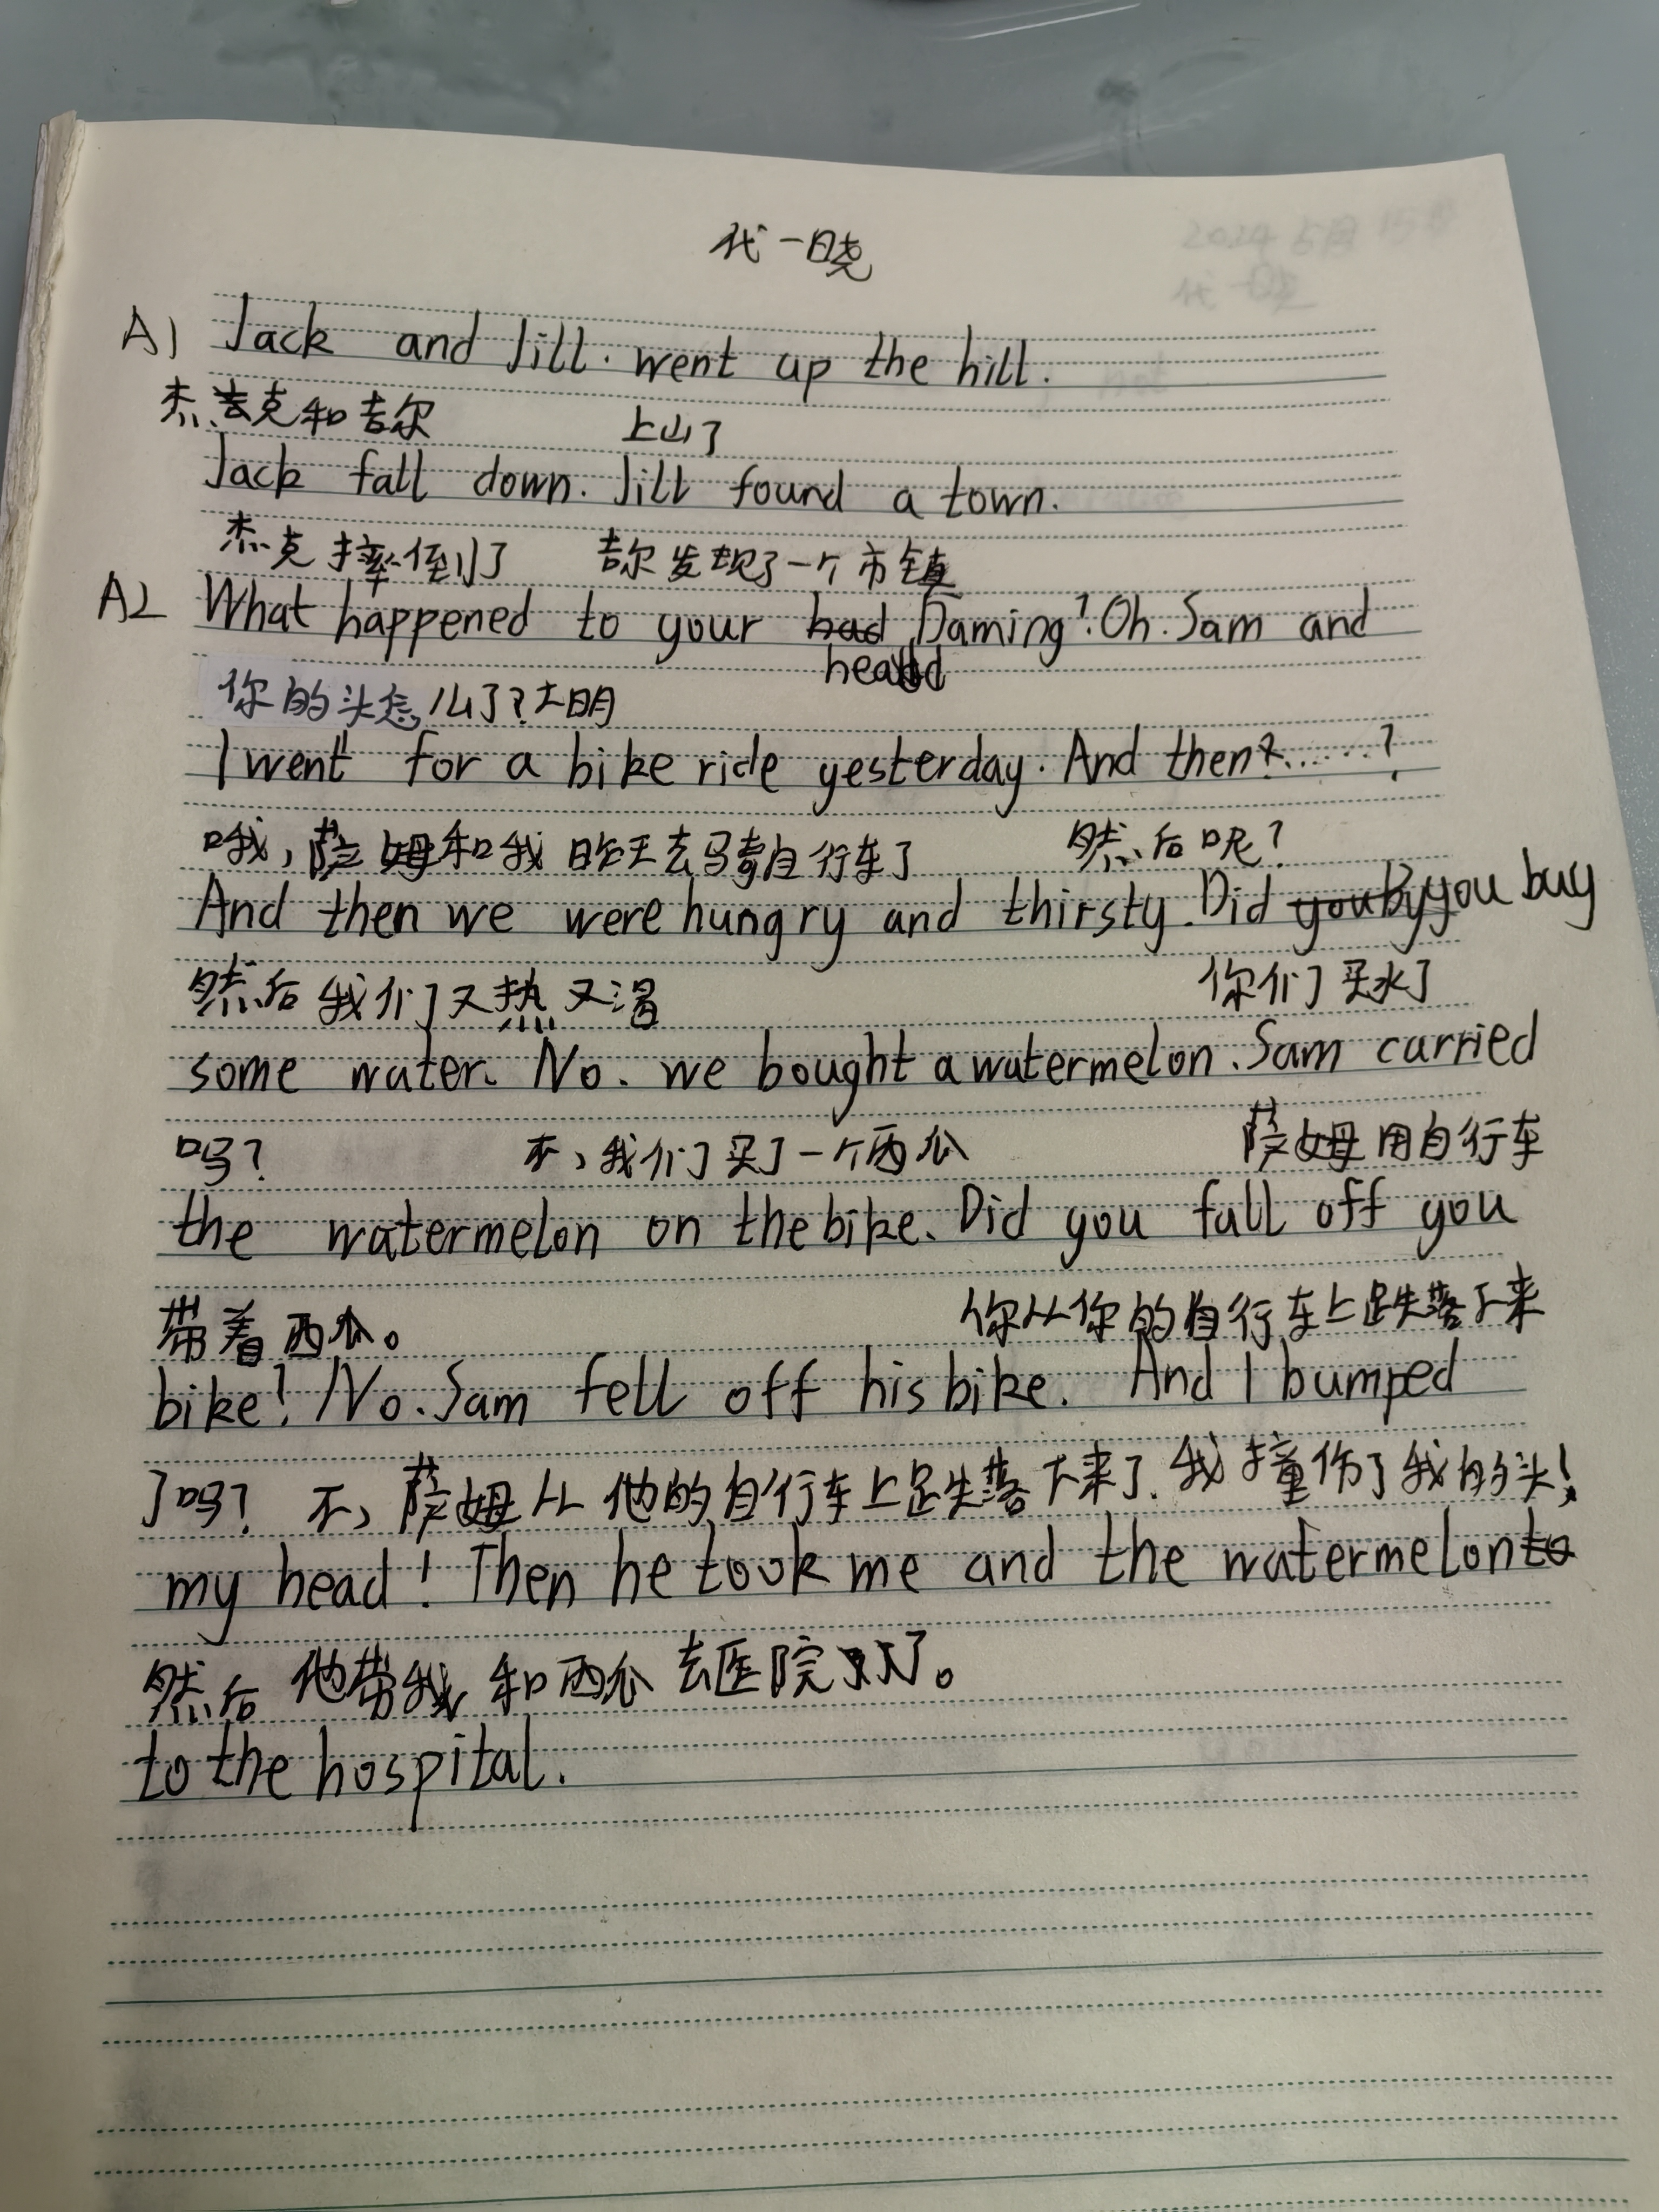 代一晓
A1 Jack and Jill. went up the hill.
杰克和吉尔 上山了
Jack fall down. Jill found a town.
杰克摔倒了 吉尔发现了一个市镇
A2 What happened to your Daming? Oh. Sam and
head
你的头怎么了?大明
I went for a bike ride yesterday. And then......?
哦,萨姆和我昨天去骑自行车了 然后呢?
And then we were hungry and thirsty. Did you buy
然后我们又热又渴 你们买水了
some water. No. we bought a watermelon. Sam carried
吗? 不,我们买了一个西瓜 萨姆用自行车
the watermelon on the bike. Did you fall off you
带着西瓜。 你从你的自行车上跌落下来
bike! No. Sam fell off his bike. And I bumped
了吗? 不,萨姆从他的自行车上跌落下来了.我撞伤了我的头!
my head! Then he took me and the watermelon
然后他带我和西瓜去医院了。
to the hospital.